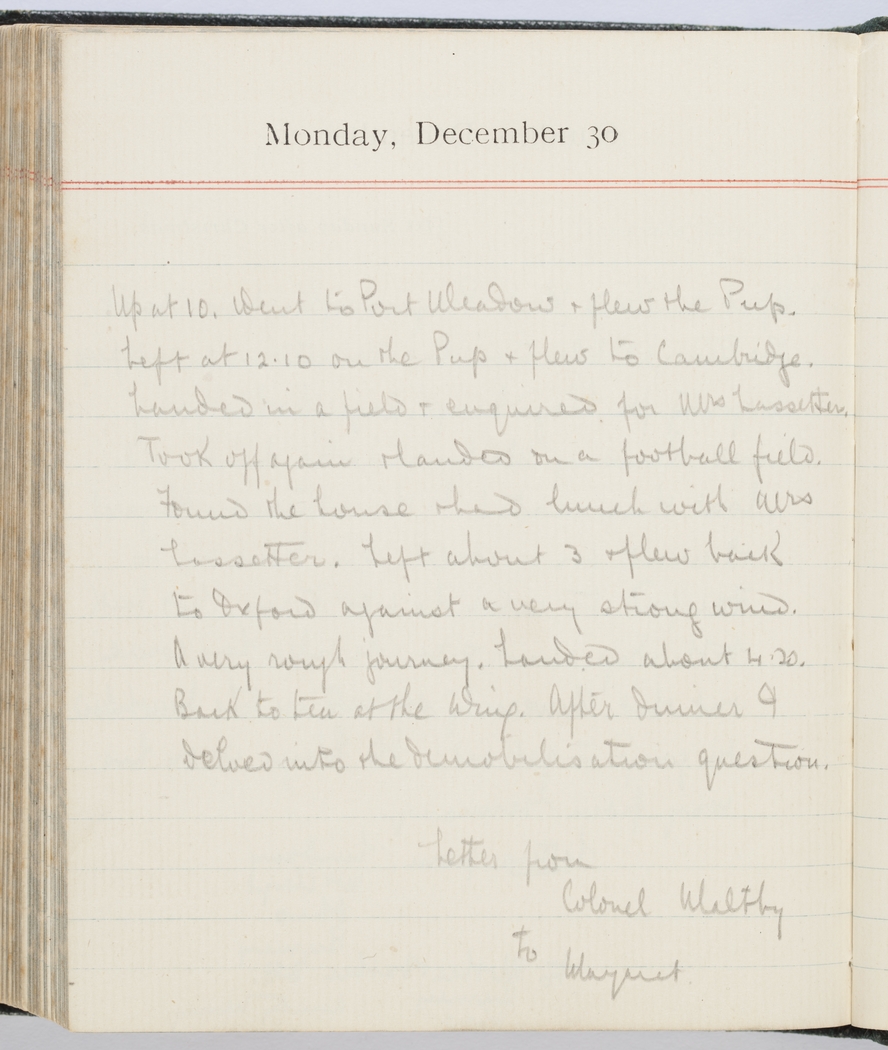 Monday, December 30
Up at 10. Went to Port Meadow + flew the Pup.
Left at 12.10 on the Pup + flew to Cambridge.
Landed in a field + enquired for Mrs Lassetter.
Took off again + landed on a football field.
Found the house + had lunch with Mrs
Lassetter. Left about 3 + flew back
to Oxford against a very strong wind.
A very rough journey. Landed about 4.20.
Back to tea at the Wing. After dinner I
delved into the demobilisation question.
Letter from
Colonel Maltby
to